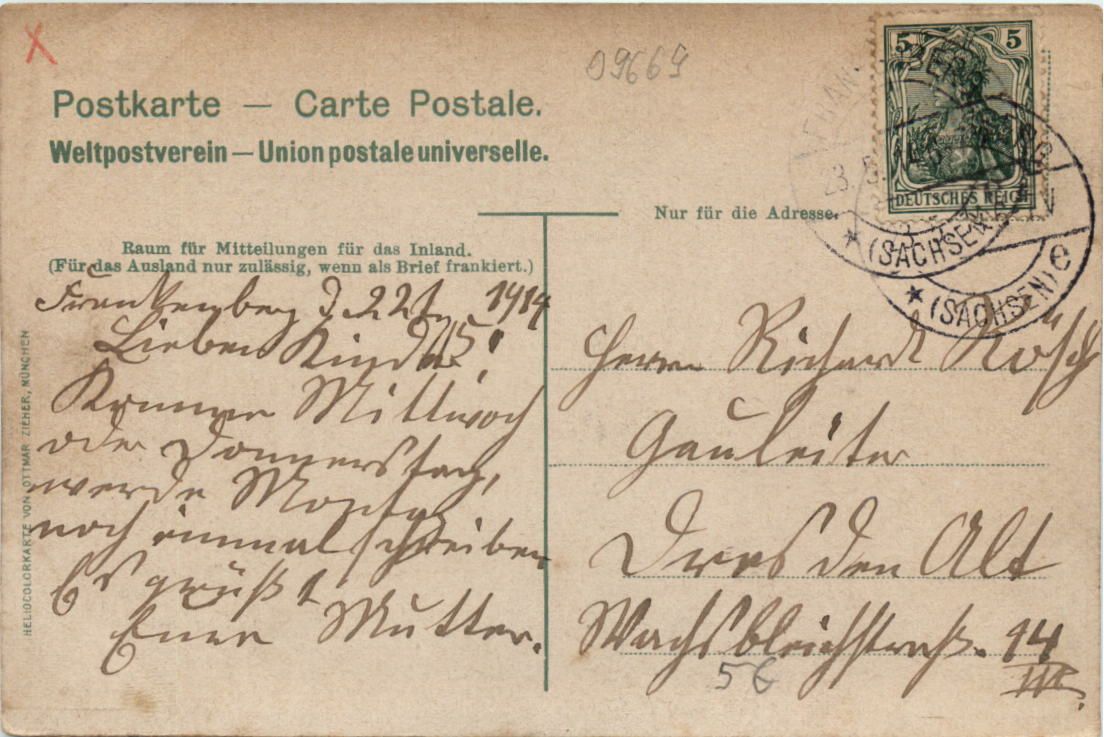 09669
5 5
DEUTSCHES REICH
Postkarte — Carte Postale.
Weltpostverein — Union postale universelle.
Nur für die Adresse.
23. 5.
(SACHSEN)
(SACHSEN) e
Raum für Mitteilungen für das Inland.
(Für das Ausland nur zulässig, wenn als Brief frankiert.)
Frankenberg d. 22 1914
Lieben Kinder!
Komme Mittwoch
oder Donnerstag,
werde Montag
noch einmal schreiben
Es grüßt
Eure Mutter.
Herrn Richard Rosch
Gauleiter
Dresden Alt
Wachsbleichstraß. 14
III.
56
HELIOCOLORKARTE VON OTTMAR ZIEHER, MÜNCHEN